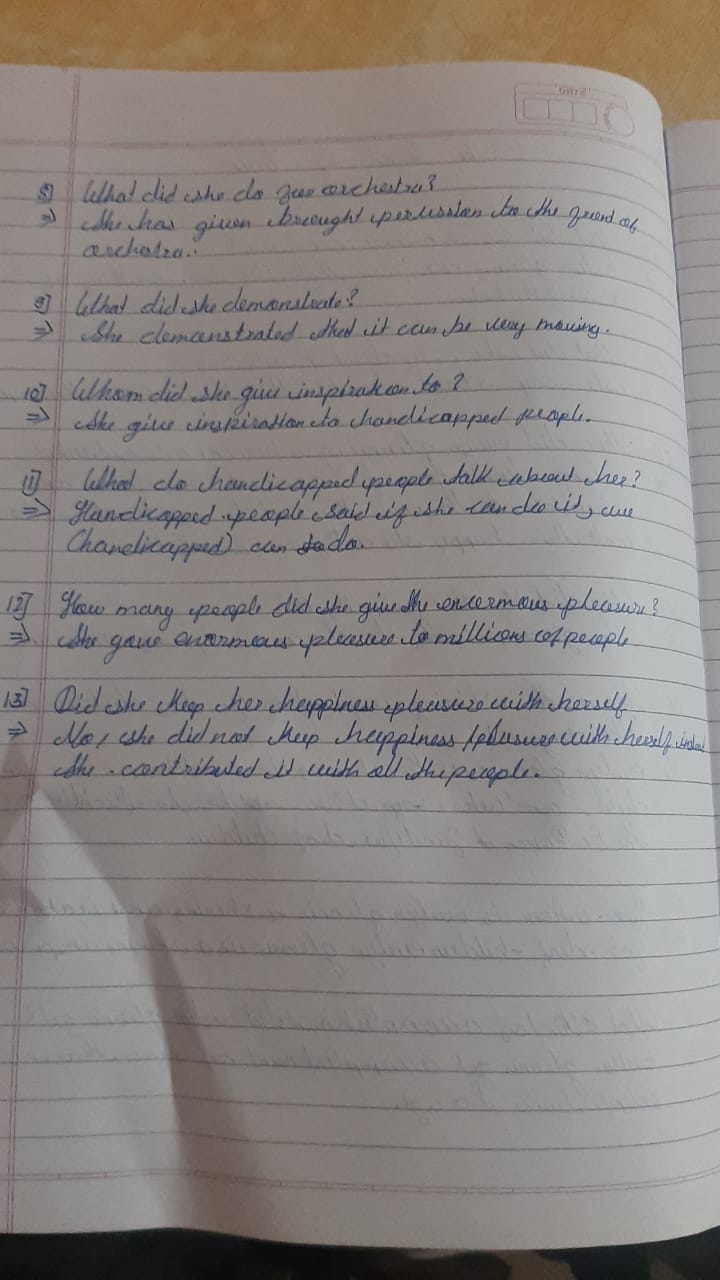 DATE
8] What did she do for orchestra?
⇒ She has given brought percussion to the front of
orchestra.
9] What did she demonstrate?
⇒ She demonstrated that it can be very moving.
10] Whom did she give inspiration to?
⇒ She give inspiration to handicapped people.
11] What do handicapped people talk about her?
⇒ Handicapped people said if she can do it, we
(handicapped) can do.
12] How many people did she give the enormous pleasure?
⇒ She gave enormous pleasure to millions of people
13] Did she keep her happiness pleasure with herself
⇒ No, she did not keep happiness / pleasure with herself instead
She contributed it with all the people.